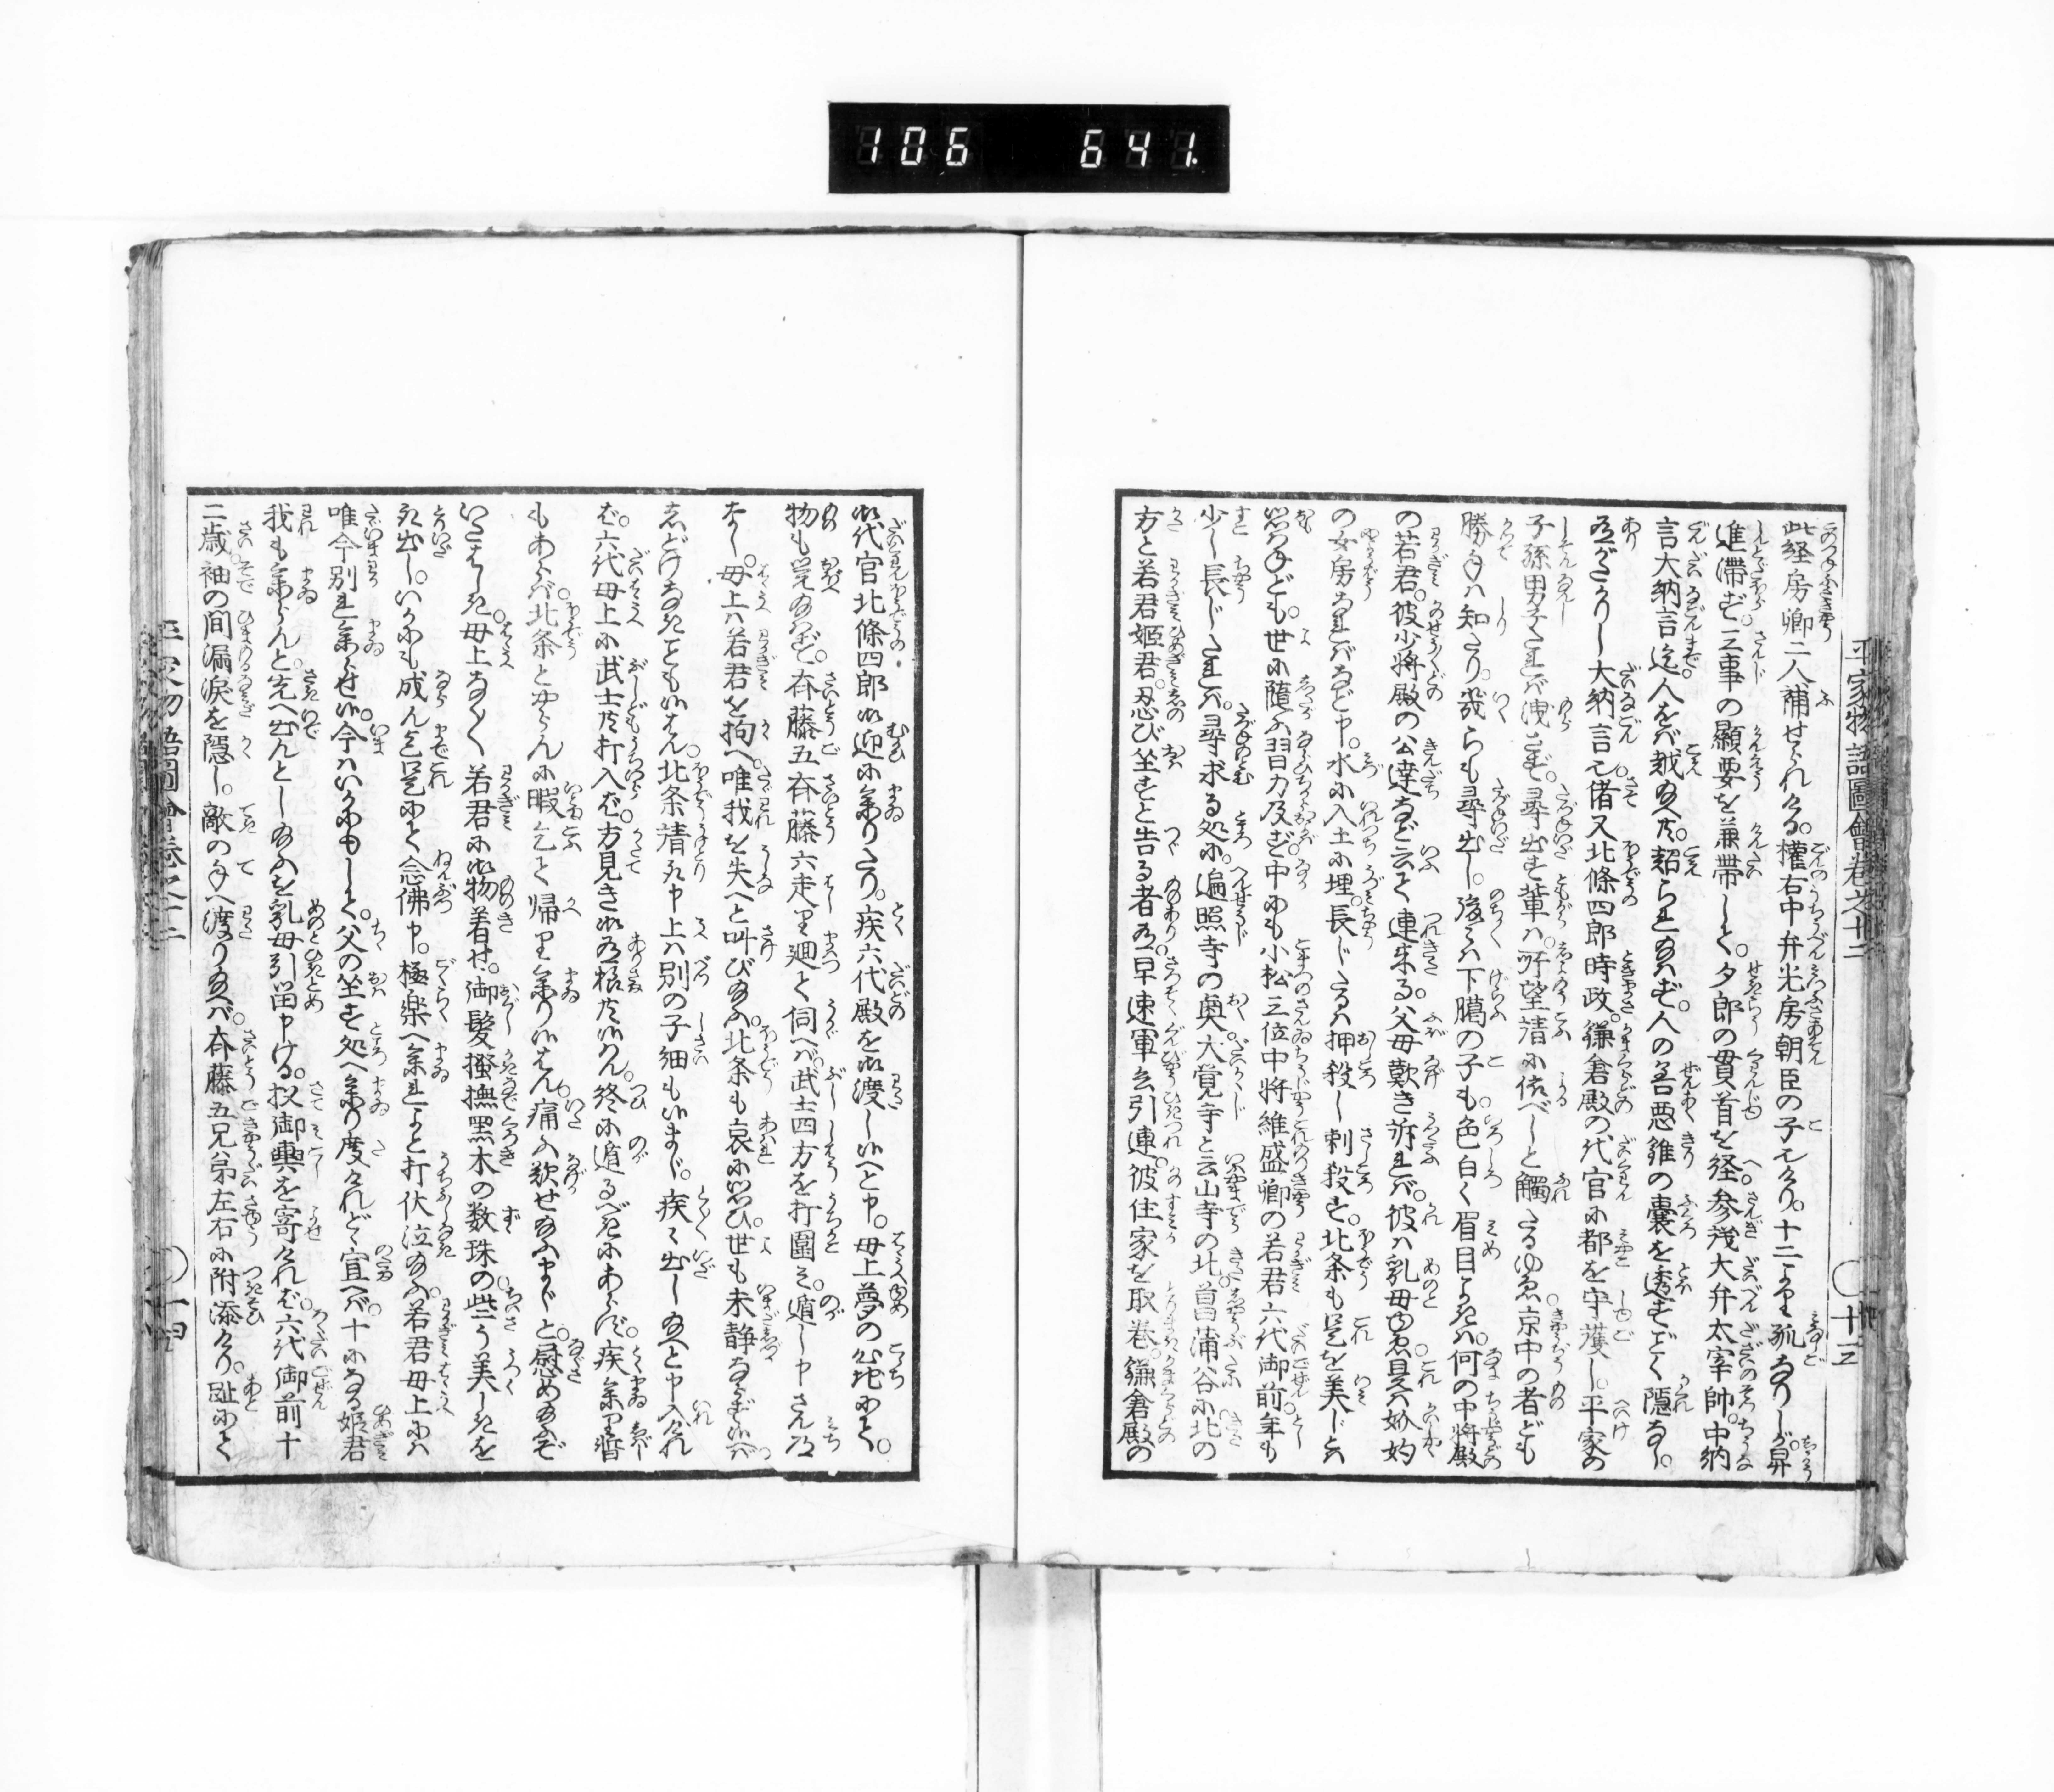 106 641.
平家物語圖會巻之十二
〇十三
此経房卿二人補せられける。權右中弁光房朝臣の子なり。十二より孤なりしが。昇
進滞ず。三事の顯要を兼帯して。夕郎の貫首を経。参議大弁太宰帥。中納
言大納言迄人をば越給へ共。超られ給はず。人の善悪錐の嚢を透すごく隠なし。
有がたかりし大納言也。偖又北條四郎時政。鎌倉殿の代官に都を守護し。平家の
子孫男子たれば洩さず。尋出す輩は。所望請に依べしと觸たるゆゑ。京中の者ども
勝手は知たり。幾らも尋出し。後々は下臈の子も。色白く眉目よきは。何の中将殿
の若君。彼少将殿の公達など云て連来る。父母歎き訴れば。彼は乳母ゆゑ。是は妙妁
の女房なればなど申。水に入土に埋。長じたるは押殺し刺殺す。北条も是を美じとは
思はねども。世に隨ふ習力及ず。中にも小松三位中将維盛卿の若君六代御前。年も
少し長じたれば。尋求る処に。遍照寺の奥。大覚寺と云山寺の北。菖蒲谷に北の
方と若君姫君。忍び坐すと告る者有。早速軍兵引連。彼住家を取巻。鎌倉殿の
御代官北條四郎御迎に参りたり。疾六代殿を御渡し候へと申。母上夢の心地にて。
物も覚給はず。斉藤五斉藤六走り廻て伺へば。武士四方を打圍み。遁し申さん道
なし。母上は若君を拘へ。唯我を失へと叫び給ふ。北条も哀に思ひ。世も未静ならず候へば
しどけなきこともいはん。北条請取申上は別の子細もいまじ。疾々出し給へと申入ければ
六代母上に武士共打入ば。方見き御有様共いはん。終に遁るべきにあらず。疾参り暫
もあらば。北条とやらんに暇乞て帰り参りいはん。痛ふ歎せ給ふまじと。慰め給ふぞ
いとほしき。母上なくなく若君に御物着せ。御髪掻撫。黒木の数珠の些う美しきを
取出し。いかにも成ん迄是にて念佛申。極楽へ参れよと打伏泣給ふ。若君母上には
唯今別れ参らせい。今はいかにもして。父の坐す処へ参り度けれど宣へば。十になる姫君
我も参らんと。先へ出んとし給ふを乳母引留申ける。扨御輿を寄ければ。六代御前十
二歳。袖の間漏涙を隠し。敵の手へ渡り給へば。斉藤五兄弟左右に附添けり。趾にて
平家物語圖會巻之十二
〇十四